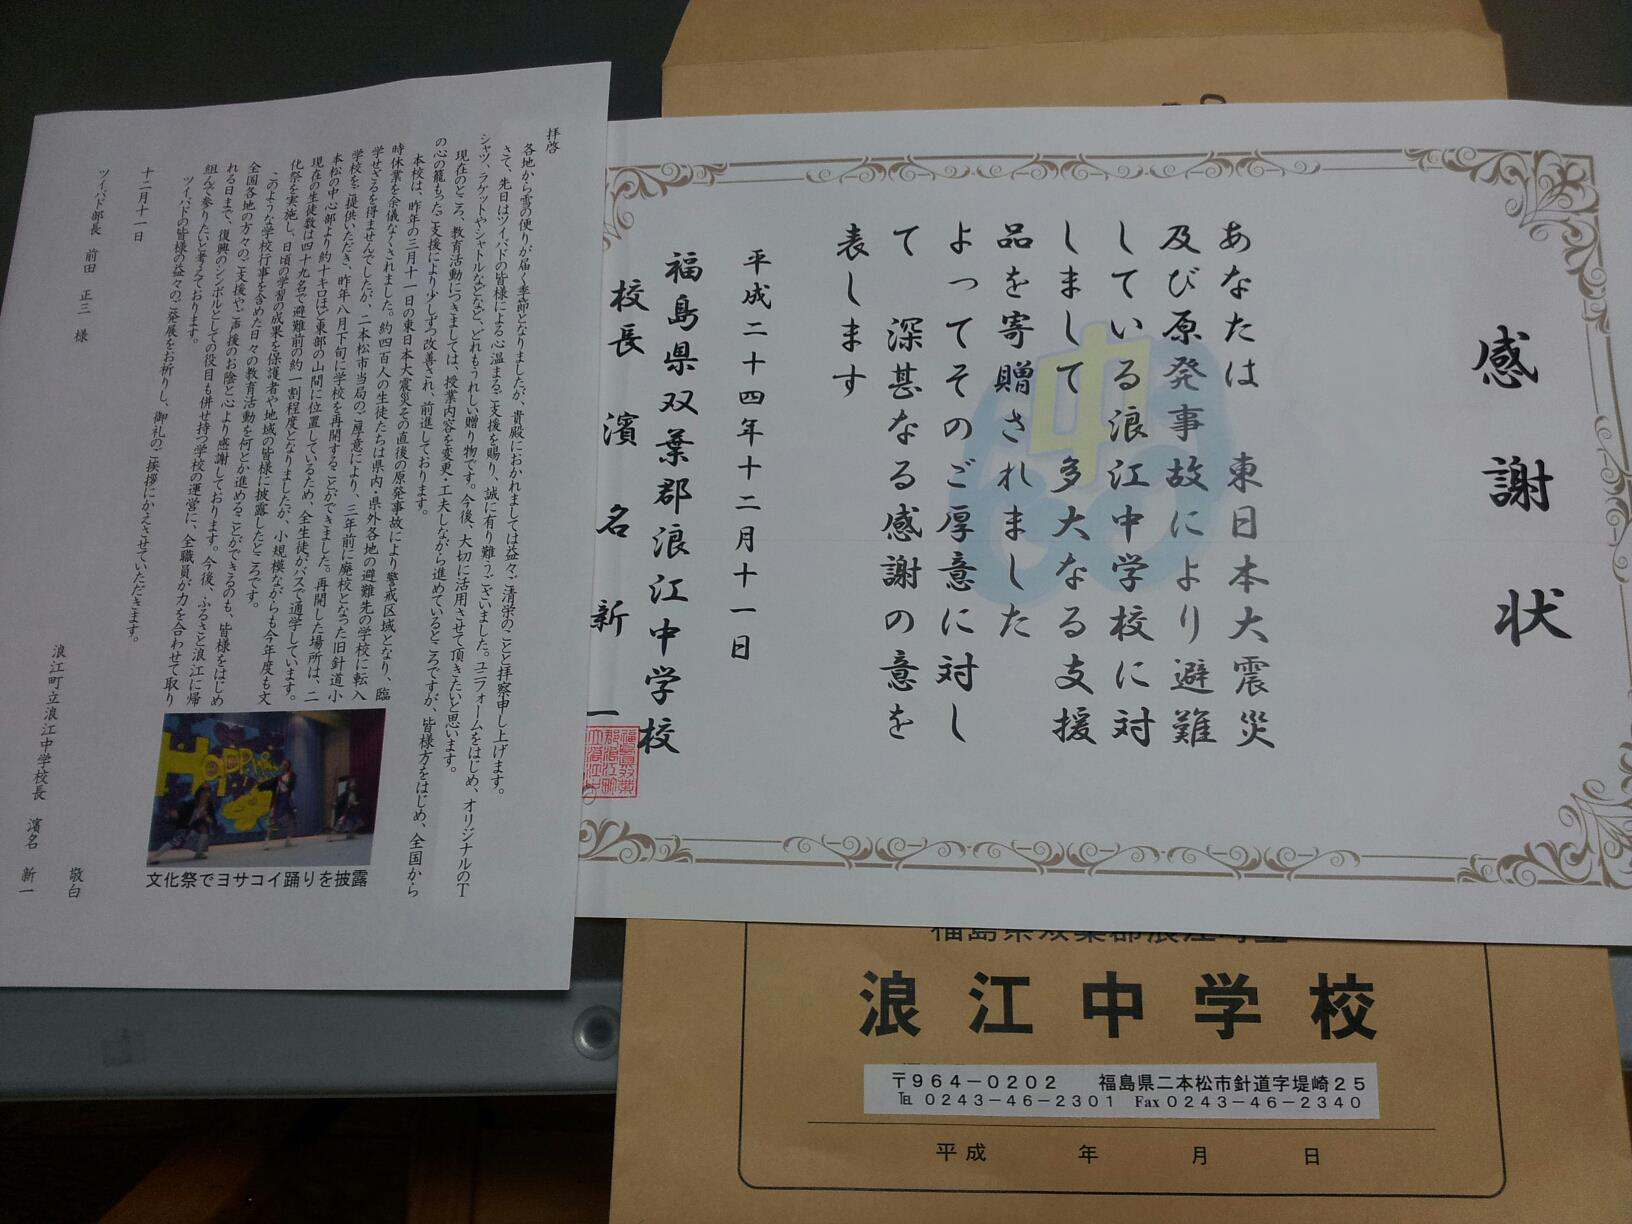 感謝状
あなたは 東日本大震災
及び原発事故により避難
している浪江中学校に対
しまして 多大なる支援
品を寄贈されました
よってそのご厚意に対し
て 深甚なる感謝の意を
表します
平成二十四年十二月十一日
福島県双葉郡浪江中学校
校長 濱名 新一
拝啓
各地から雪の便りが届く季節となりましたが、貴殿におかれましては益々ご清栄のことと拝察申し上げます。
さて、先日はツイバドの皆様による心温まるご支援を賜り、誠に有り難うございました。ユニフォームをはじめ、オリジナルのT
シャツ、ラケットやシャトルなどなど、どれもうれしい贈り物です。今後、大切に活用させて頂きたいと思います。
現在のところ、教育活動につきましては、授業内容を変更・工夫しながら進めているところですが、皆様方をはじめ、全国から
の心の籠もったご支援により少しずつ改善され、前進しております。
本校は、昨年の三月十一日の東日本大震災その直後の原発事故により警戒区域となり、臨
時休業を余儀なくされました。約四百人の生徒たちは県内・県外各地の避難先の学校に転入
学せざるを得ませんでしたが、二本松市当局のご厚意により、三年前に廃校となった旧針道小
学校をご提供いただき、昨年八月下旬に学校を再開することができました。再開した場所は、二
本松の中心部より約十キロほど東部の山間に位置しているため、全生徒がバスで通学しています。
現在の生徒数は四十九名で避難前の約一割程度となりましたが、小規模ながらも今年度も文
化祭を実施し、日頃の学習の成果を保護者や地域の皆様に披露したところです。
このような学校行事を含めた日々の教育活動を何とか進めることができるのも、皆様をはじめ
全国各地の方々のご支援やご声援のお陰と心より感謝しております。今後、ふるさと浪江に帰
れる日まで、復興のシンボルとしての役目も併せ持つ学校の運営に、全職員が力を合わせて取り
組んで参りたいと考えております。
ツイバドの皆様の益々のご発展をお祈りし、御礼のご挨拶にかえさせていただきます。
敬白
十二月十一日
浪江町立浪江中学校長 濱名 新一
ツイバド部長 前田 正三 様
文化祭でヨサコイ踊りを披露
浪江中学校
〒964-0202 福島県二本松市針道字堤崎25
℡ 0243-46-2301 Fax 0243-46-2340
平成 年 月 日